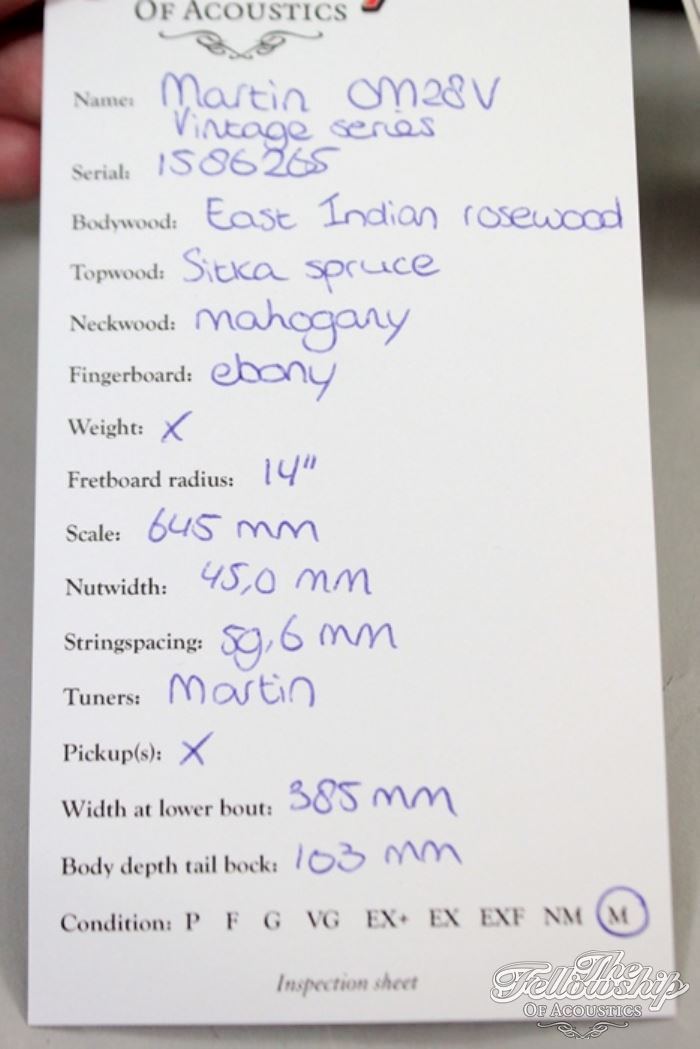 OF ACOUSTICS
Name: Martin OM28V
Vintage series
Serial: 1586265
Bodywood: East Indian rosewood
Topwood: Sitka spruce
Neckwood: mahogany
Fingerboard: ebony
Weight: X
Fretboard radius: 14"
Scale: 645 mm
Nutwidth: 45,0 mm
Stringspacing: 59,6 mm
Tuners: Martin
Pickup(s): X
Width at lower bout: 385 mm
Body depth tail bock: 103 mm
Condition: P F G VG EX+ EX EXF NM M
Inspection sheet
The
Fellowship
OF ACOUSTICS